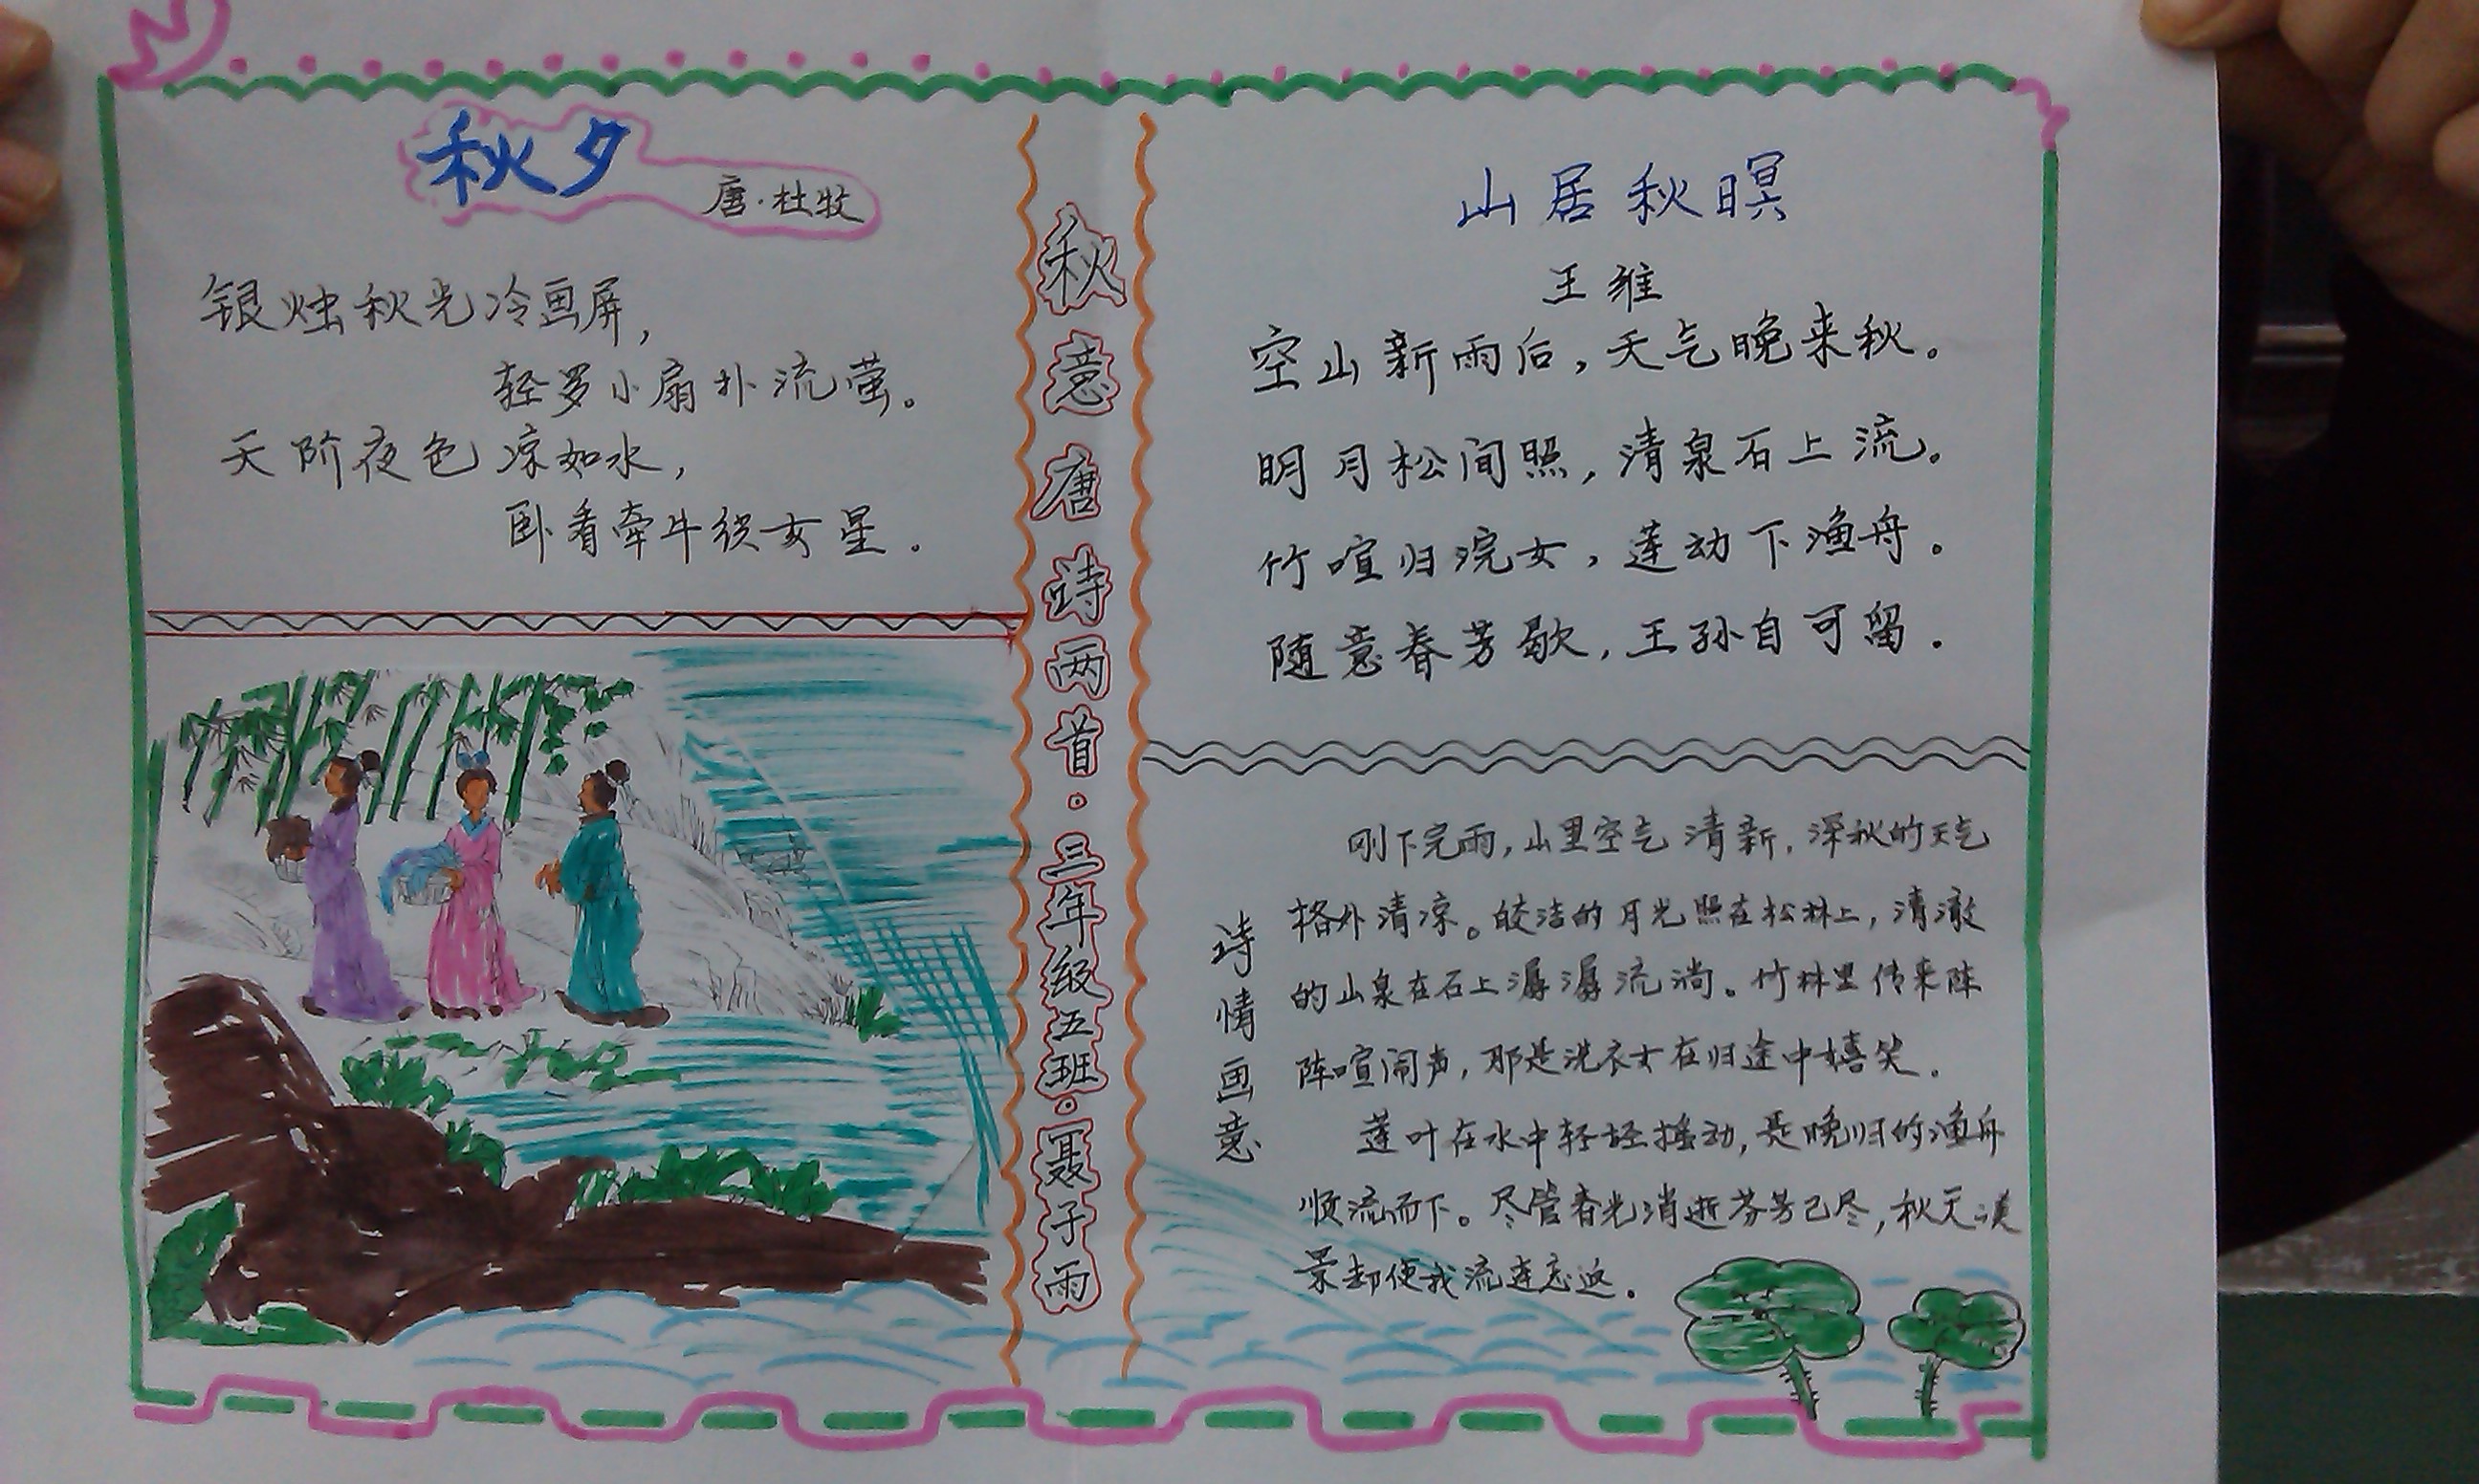 秋夕
唐·杜牧
银烛秋光冷画屏，
轻罗小扇扑流萤。
天阶夜色凉如水，
卧看牵牛织女星。
秋意唐诗两首·三年级五班·聂子雨
山居秋暝
王维
空山新雨后，天气晚来秋。
明月松间照，清泉石上流。
竹喧归浣女，莲动下渔舟。
随意春芳歇，王孙自可留。
诗情画意
刚下完雨，山里空气清新，深秋的天气
格外清凉。皎洁的月光照在松林上，清澈
的山泉在石上潺潺流淌。竹林里传来阵
阵喧闹声，那是洗衣女在归途中嬉笑。
莲叶在水中轻轻摇动，是晚归的渔舟
顺流而下。尽管春光消逝芬芳已尽，秋天美
景却使我流连忘返。